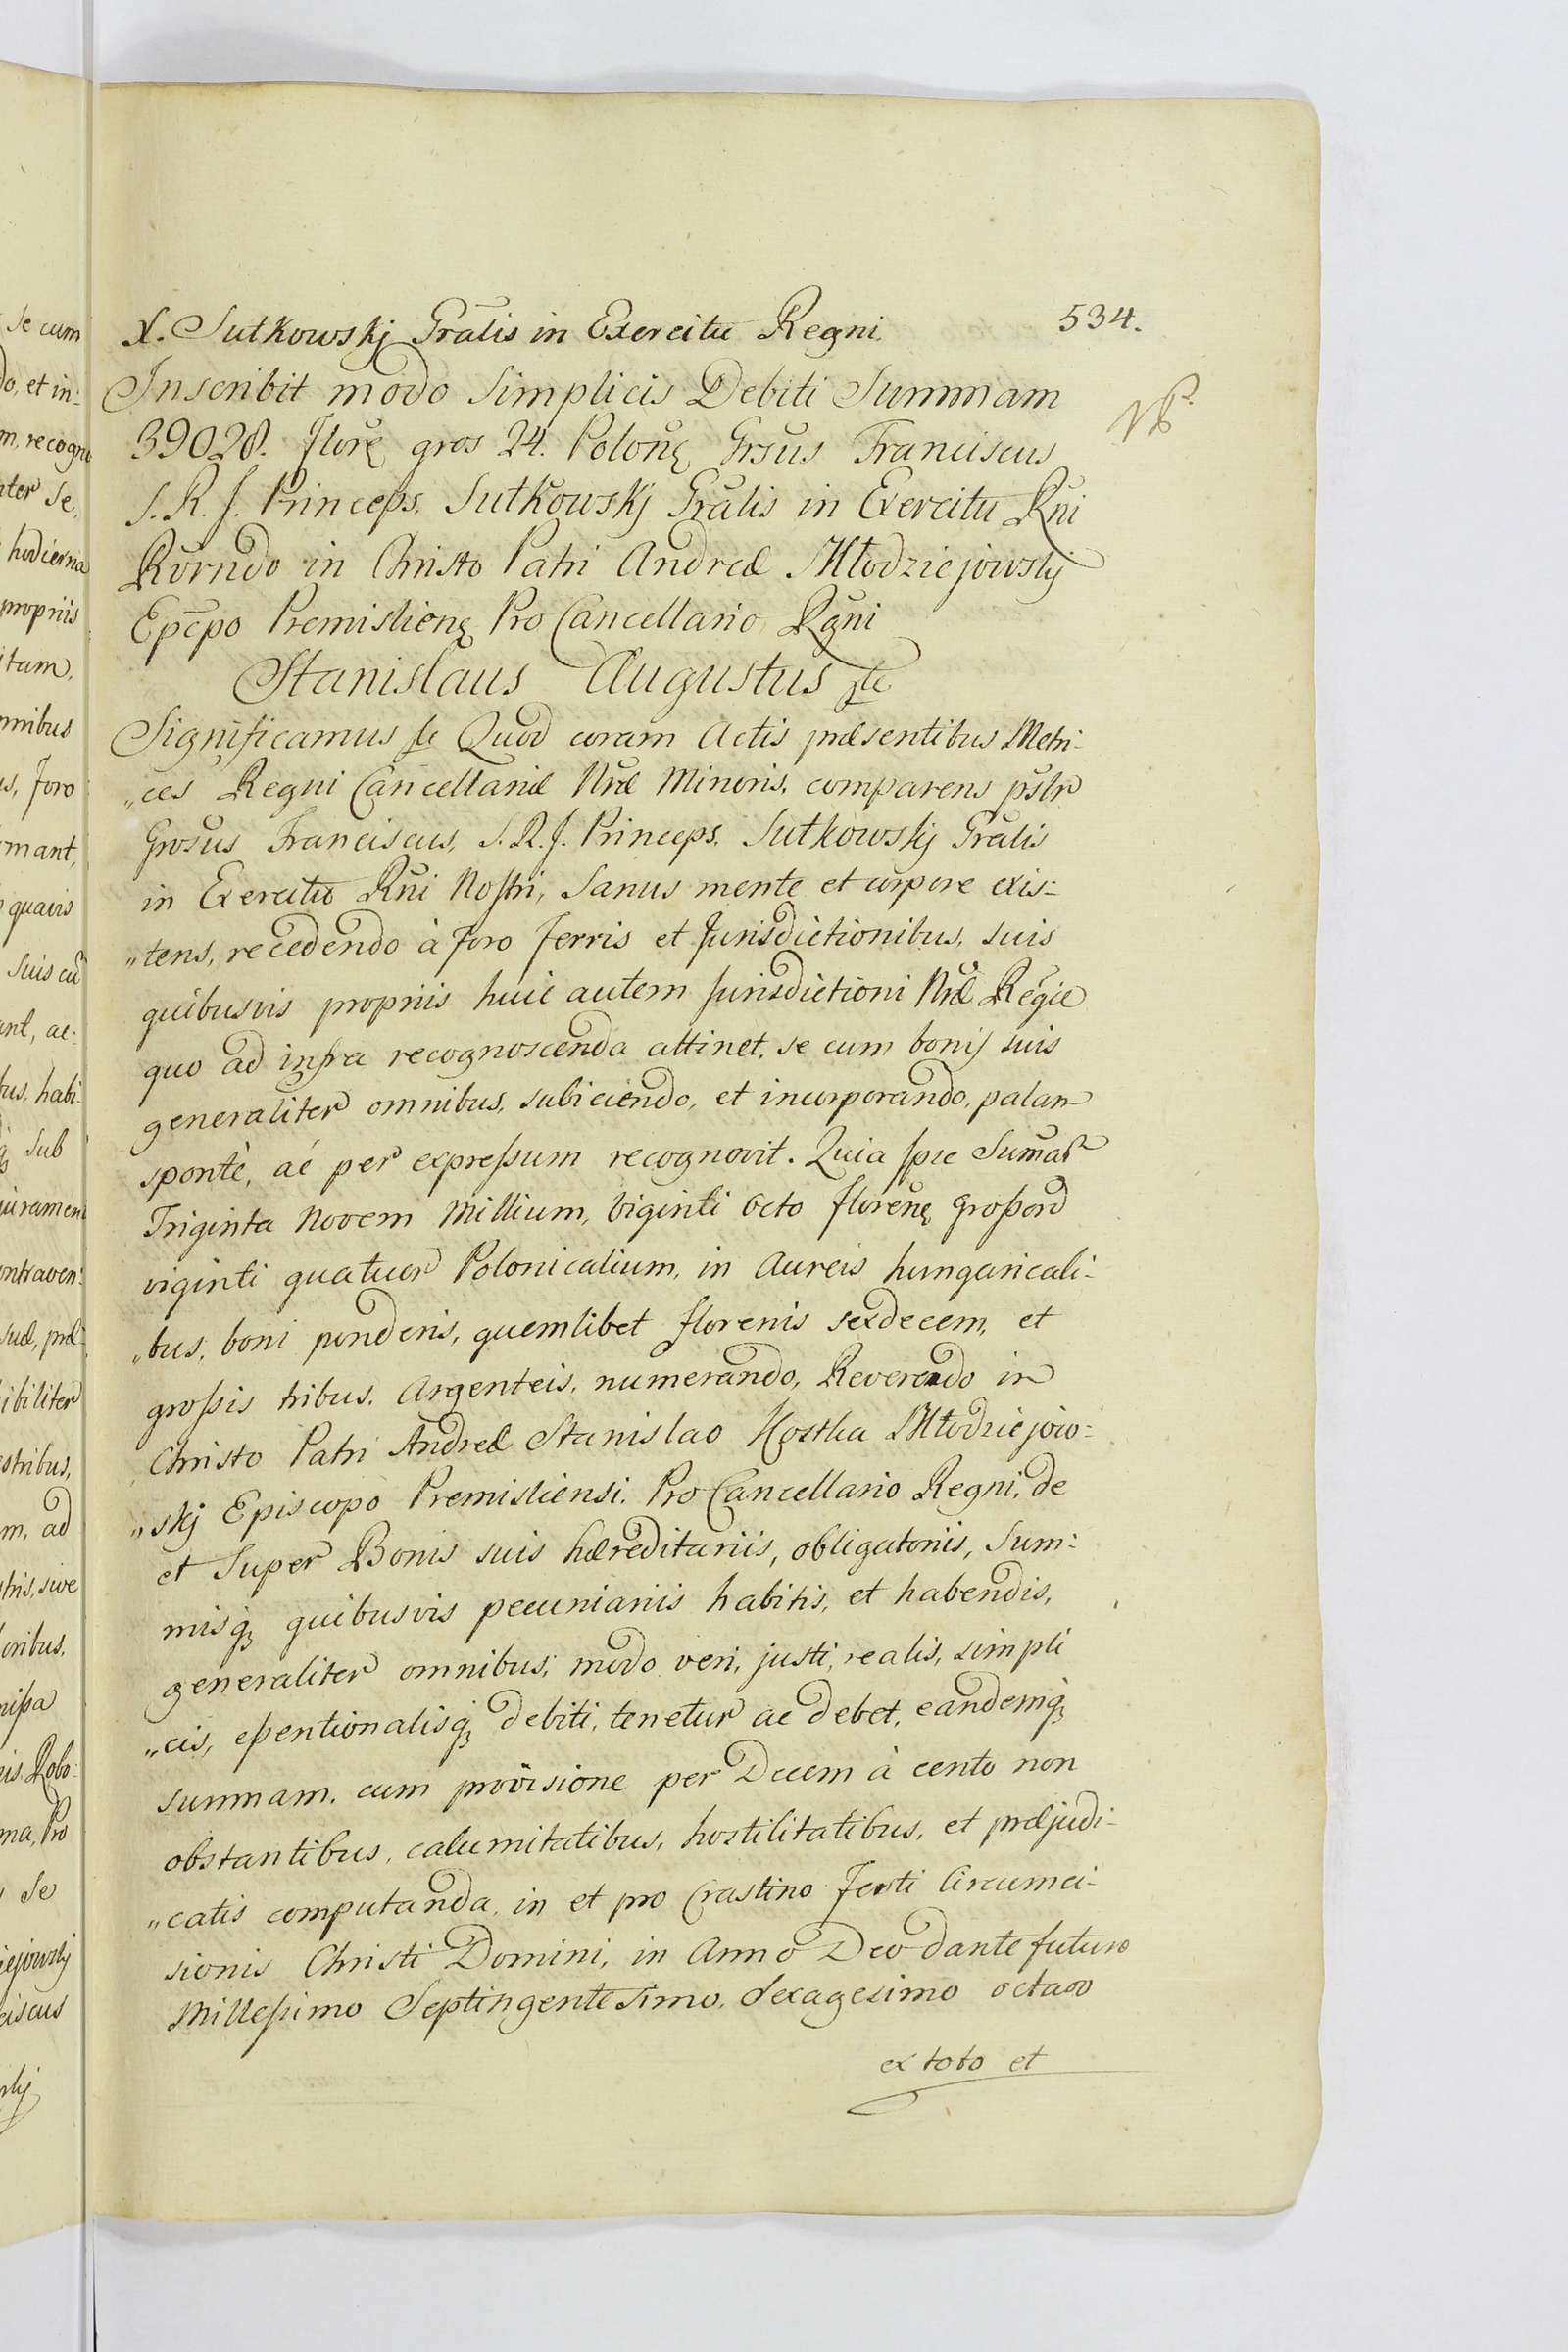 X. Sutkowskj Gra̅lis in Exercitu Regni.
534.
Inscribit modo Simplicis Debiti Summam
39028. flore̅ gros 24. Polon̅ę Grsu̅s Franciscus
S. R. J. Princeps. Sutkowskj Gra̅lis in Exercitu Rn̅i
Rvrn̅do in Christo Patri Andreæ Młodziejowskj
Epc̅po Premislienę Pro Cancellario Rgn̅i
Stanislaus Augustus
Significamus Quod coram Actis præsentibus Metri-
„ces Regni Cancellariæ Nr̅æ Minoris, comparens pslr̅
Grosu̅s Franciscus, S. R. J. Princeps. Sutkowskj Gra̅lis
in Exercitu Rn̅i Nostri, Sanus mente et corpore exis-
„tens, recedendo à Foro Terris et Jurisdictionibus, suis
quibusvis propriis huic autem Jurisdictioni Nr̅æ Regiæ
quo ad infra recognoscenda attinet, se cum bonis suis
generaliter omnibus, subiiciendo, et incorporando, palam
spontè, ac per expressum recognovit. Quia ipse
Triginta Novem Millium, Viginti Octo floren̅ę grossor̅
viginti quatuor Polonicalium, in Aureis hungaricali-
„bus, boni ponderis, quemlibet florenis sexdecem, et
grossis tribus. Argenteis, numerando, Reverendo in
Christo Patri Andreæ Stanislao Kostka Młodziejow-
„skj Episcopo Premisliensi. Pro Cancellario Regni, de
et Super Bonis suis hæreditariis, obligatoriis, Sum-
misq̨ quibusvis pecuniariis habitis, et habendis,
generaliter omnibus, modo veri, justi, realis, simpli
„cis, essentionalisq̨ debiti, tenetur ac debet, eandemq̨
summam, cum provisione per Decem à cento non
obstantibus, calumitatibus, hostilitatibus, et præjudi-
„catis computanda, in et pro Crastino Festi Circumci-
sionis Christi Domini, in Anno Deo dante futuro
Millesimo Septingentesimo, Sexagesimo octavo
ex toto et